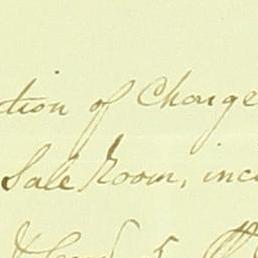 ction of Charge
Sale Room, inc